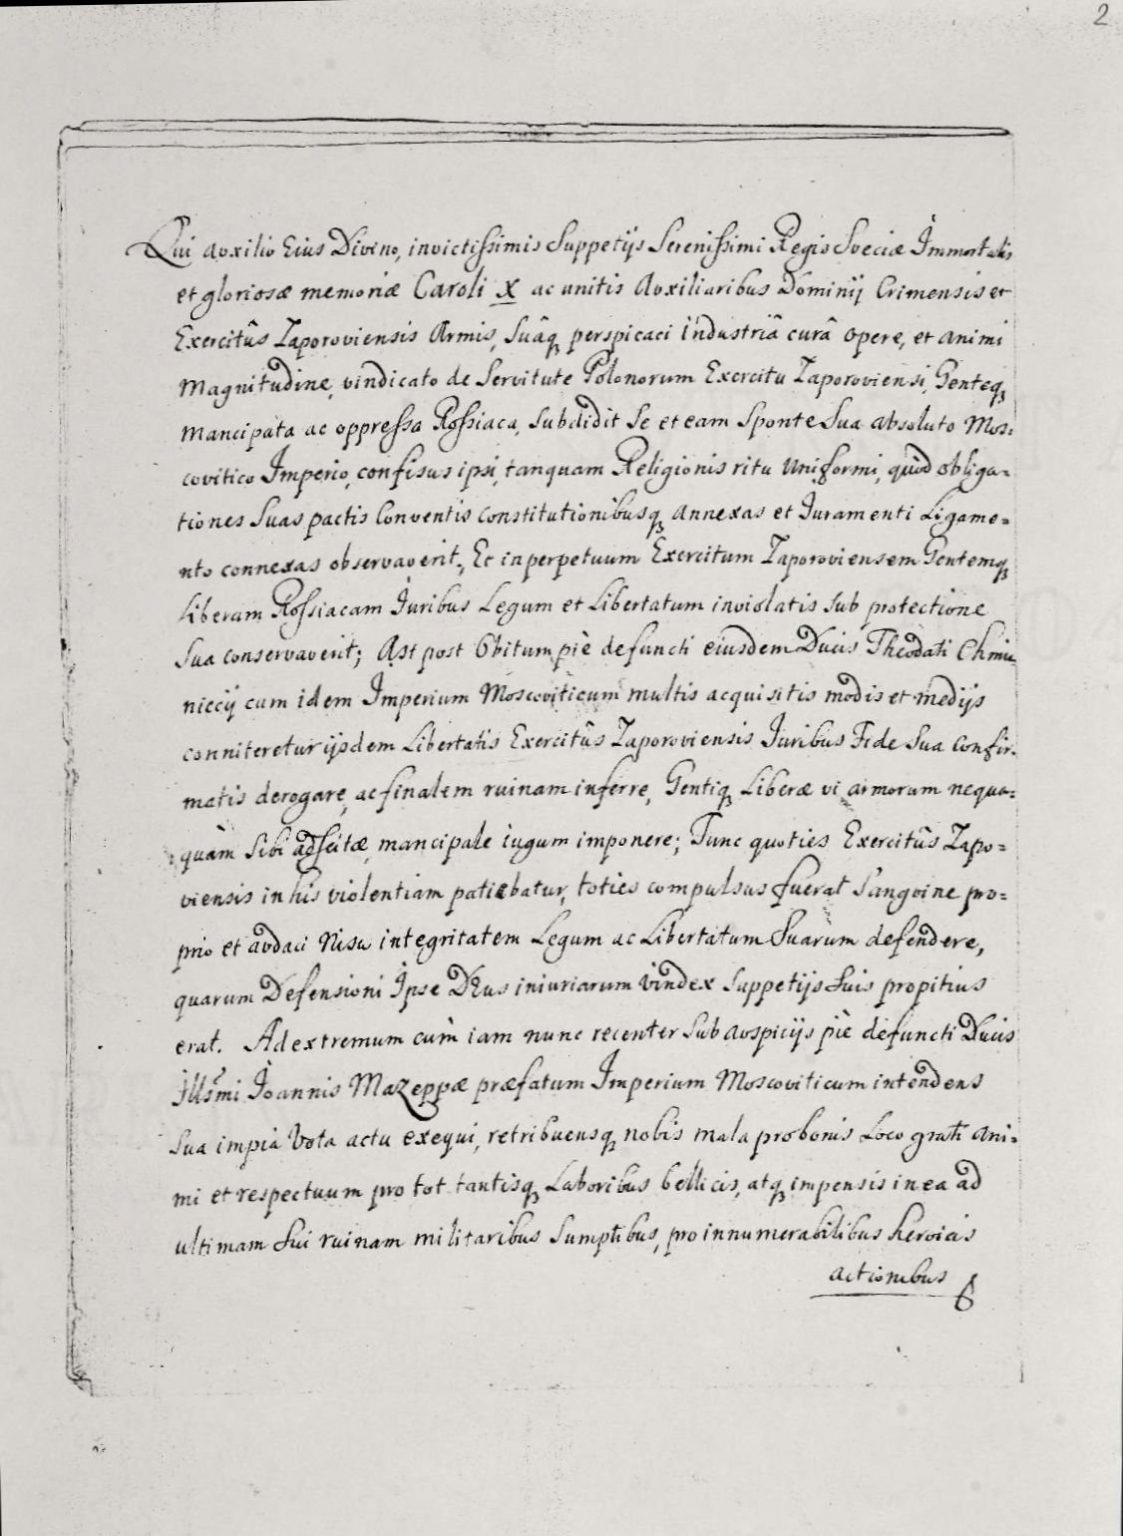 2
Qui auxilio Eius Divino, invictissimis Suppetijs Serenissimi Regis Sveciæ Immortalis
et gloriosæ memoriæ Caroli X ac unitis Auxiliaribus Dominij Crimensis et
Exercitûs Zaporoviensis Armis, Suâq, perspicaci industriâ curâ opere, et animi
magnitudine, vindicato de Servitute Polonorum Exercitu Zaporoviensi, Genteq,
mancipata ac oppressa Rossiaca, subdidit Se et eam Sponte Sua absoluto Mos:
covitico Imperio, confisus ipsi, tanquam Religionis ritu uniformi, quòd obliga=
tiones Suas pactis Conventis constitutionibusq, annexas et Juramenti Ligame=
nto connexas observaverit., Et in perpetuum Exercitum Zaporoviensem Gentemq,
liberam Rossiacam Juribus Legum et Libertatum inviolatis sub protectione
Sua conservaverit; Ast post Obitum piè defuncti eiusdem Ducis Theodati Chmi
niecij cum idem Imperium Moscoviticum multis acquisitis modis et medijs
conniteretur ijsdem Libertatis Exercitûs Zaporoviensis Juribus Fide Sua confir=
matis derogare, ac finalem ruinam inferre, Gentiq, Liberæ vi armorum nequa=
quàm Sibi adscitæ, mancipale iugum imponere; Tunc quoties Exercitûs Zapo=
viensis in his violentiam patiebatur, toties compulsus fuerat Sangvine pro=
prio et audaci Nisu integritatem Legum ac Libertatum Suarum defendere,
quarum Defensioni Ipse DEus iniuriarum vindex Suppetijs Suis propitius
erat. Ad extremum cum iam nunc recenter Sub auspicijs piè defuncti Ducis
Illsmi Joannis Mazeppæ præfatum Imperium Moscoviticum intendens
Sua impia Vota actu exequi, retribuensq, nobis mala pro bonis Loco grati ani=
mi et respectuum pro tot tantisq, Laboribus bellicis, atq, impensis in ea ad
ultimam Sui ruinam militaribus Sumptibus, pro innumerabilibus heroicis
actionibus